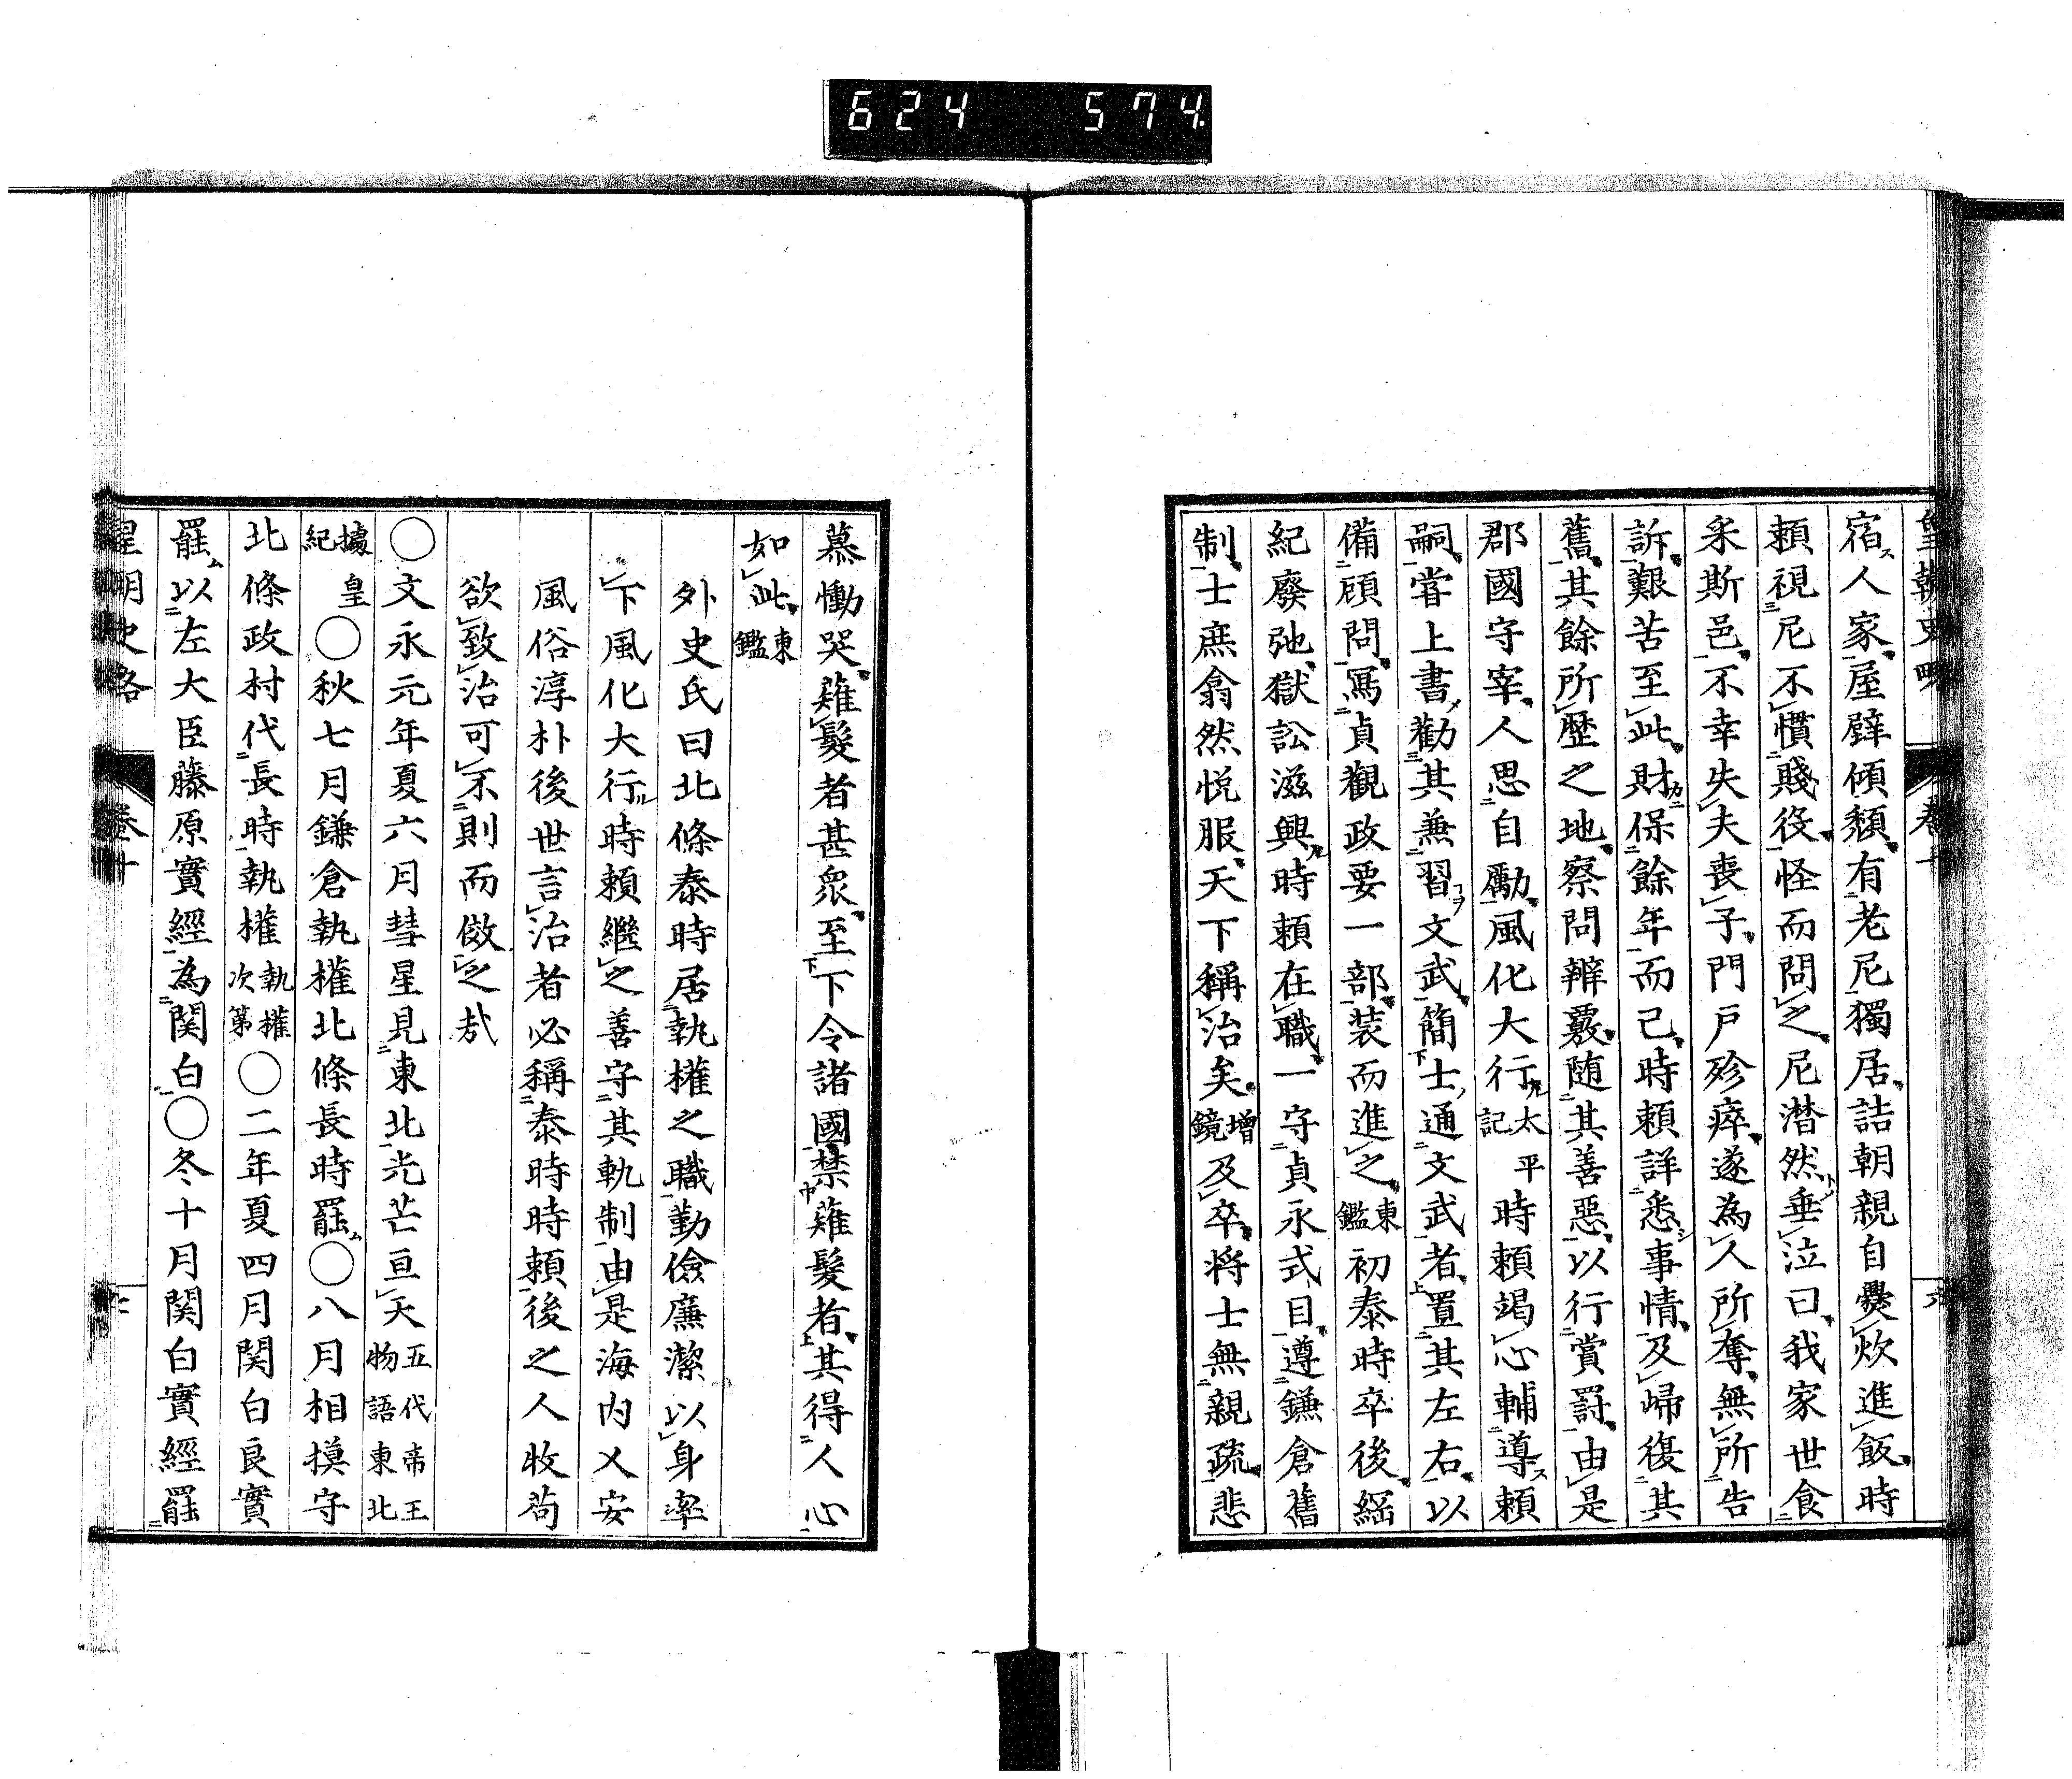 624 574
皇朝史略 卷十 六
宿人家屋壁傾頽有老尼獨居詰朝親自爨炊進飯時
頼視尼不慣賤役怪而問之尼潸然垂泣曰我家世食
采斯邑不幸失夫喪子門戸殄瘁遂為人所奪無所告
訴艱苦至此財保餘年而已時頼詳悉事情及歸復其
舊其餘所歷之地察問辨覈随其善惡以行賞罰由是
郡國守宰人思自勵風化大行太平記時頼竭心輔導頼
嗣嘗上書勸其兼習文武簡士通文武者置其左右以
備顧問寫貞觀政要一部装而進之東鑑初泰時卒後綱
紀廢弛獄訟滋興時頼在職一守貞永式目遵鎌倉舊
制士庶翕然悦服天下稱治矣增鏡及卒将士無親疏悲
慕慟哭薙髮者甚衆至下令諸國禁薙髮者其得人心
如此東鑑
外史氏曰北條泰時居執權之職勤儉廉潔以身率
下風化大行時頼繼之善守其軌制由是海内乂安
風俗淳朴後世言治者必稱泰時時頼後之人牧茍
欲致治可不則而倣之㢤
○文永元年夏六月彗星見東北光芒亘天五代帝王物語東北
據皇紀○秋七月鎌倉執權北條長時罷○八月相摸守
北條政村代長時執權執權次第○二年夏四月関白良實
罷以左大臣藤原實經為関白○冬十月関白實經罷
皇朝史略 卷十 七